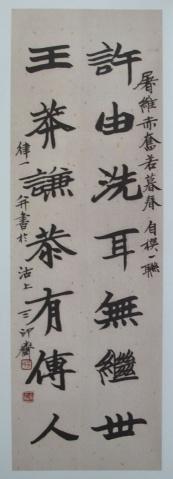 屠維赤奮若暮春自撰一聯
許由洗耳無繼世
王莽謙恭有傳人
律一并書於沽上三卯齋